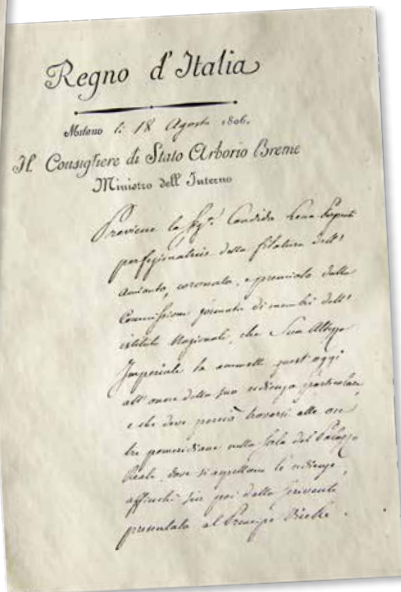 Regno d'Italia
Milano li 18 Agosto 1806.
Il Consigliere di Stato Arborio Breme
Ministro dell'Interno
Previene la Sig.ra Candida Lena Perpenti
perfezionatrice della filatura dell'
amianto, coronata, e premiata dalla
Commissione formata di membri dell'
istituto Nazionale, che Sua Altezza
Imperiale la ammette quest'oggi
all'onore della sua udienza particolare,
e che deve perciò trovarsi alle ore
tre pomeridiane nella Sala del Palazzo
Reale, dove si aspettano le udienze,
affinchè sia poi dallo scrivente
presentata al Principe Vicerè.